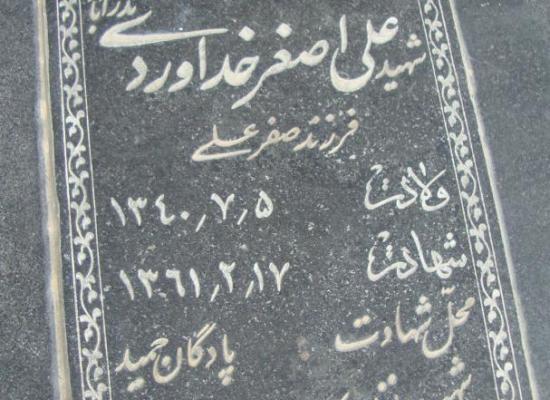 شهید علی اصغر خداوردی
فرزند صفر علی
ولادت ۱۳۴۰٫۷٫۵
شهادت ۱۳۶۱٫۲٫۱۷
محل شهادت پادگان حمید